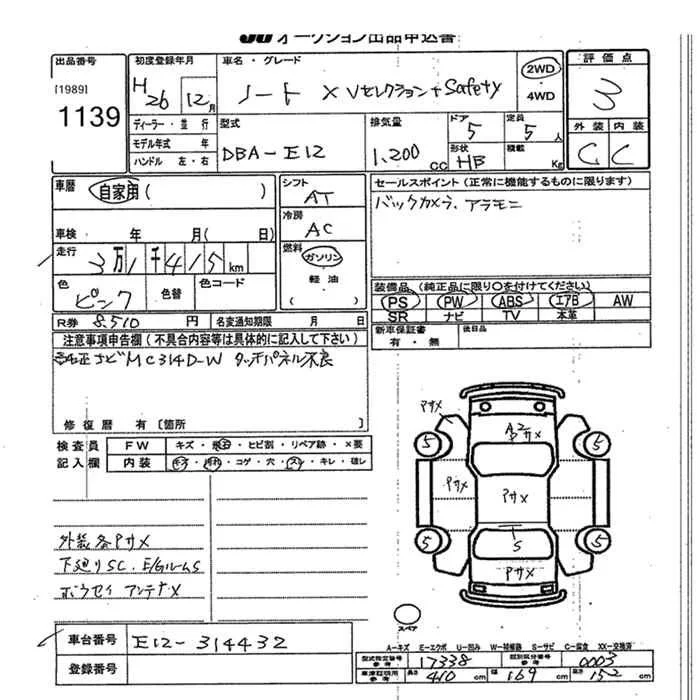 JU オークション出品申込書
出品番号 初度登録年月 車名・グレード 評価点
[1989] H 26 12月 ノート X Vセレクション+Safety 2WD・4WD 3
1139 ディーラー・並行 型式 排気量 ドア 定員 外装 内装
モデル年式 年 DBA-E12 1,200cc 5 5人 C C
ハンドル 左・右 形状 HB 積載 Kg
車歴 自家用( ) シフト AT セールスポイント(正常に機能するものに限ります)
冷房 AC バックカメラ、アラモニ
車検 年 月( 日)
走行 3万1千415km 燃料 ガソリン
軽油
( )
色 ピンク 色替 色コード 装備品(純正品に限り○を付けてください)
PS PW ABS エアB AW
SR ナビ TV 本革
R券 8,510円 名変通知期限 月 日 新車保証書 後日品
有・無
注意事項申告欄(不具合内容等は具体的に記入して下さい)
純正ナビMC314D-W タッチパネル不良
修復歴 有[箇所 ]
検査員 FW キズ・飛石・ヒビ割・リペア跡・×要
記入欄 内装 キズ・汚れ・コゲ・穴・スレ・キレ・破レ
PサX A2 PサX
5 5
PサX PサX
5 S 5
PサX
外装各PサX
下廻りSC. E/GルームS
アンテナX
スペア
A-キズ E-エクボ U-凹み W-補修跡 S-サビ C-腐食 XX-交換済
車台番号 E12-314432
型式指定番号 参考 17338 類別区分番号 参考 0003
登録番号
車庫証明用 参考 長さ 410cm 幅 169cm 高さ 152cm